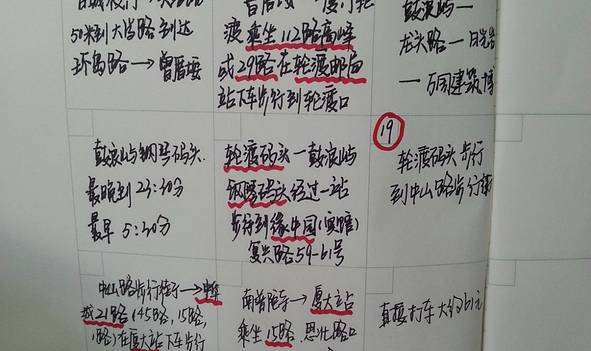 50米到大生路到达
环岛路→曾厝垵
渡 乘坐112路高峰
或29路 在轮渡邮局
站下车步行到轮渡口
鼓浪屿
龙头路一日光岩
一万国建筑博
鼓浪屿钢琴码头
最晚到23:30分
最早 5:30分
轮渡码头一鼓浪屿
经过一站
步行到缘中国(宾馆)
复兴路59-61号
19
轮渡码头步行
到中山路步行街
中山路步行街→
21路(45路,15路,
路)在厦大站下车步行
南普陀寺→厦大站
乘坐15路 思北路口
直接打车大约 元